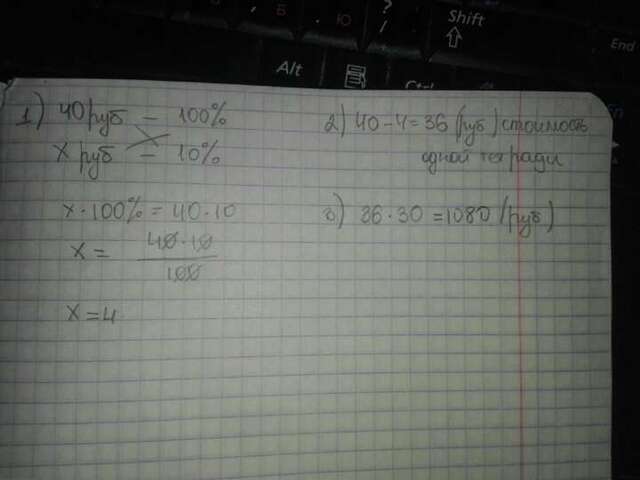 ?
/
Б
Ю
Shift
Alt
Ctrl
End
1) 40 руб — 100%
х руб — 10%
х · 100% = 40 · 10
х = 40 · 10
100
х = 4
2) 40 - 4 = 36 (руб) стоимость
одной тетради
3) 36 · 30 = 1080 (руб)